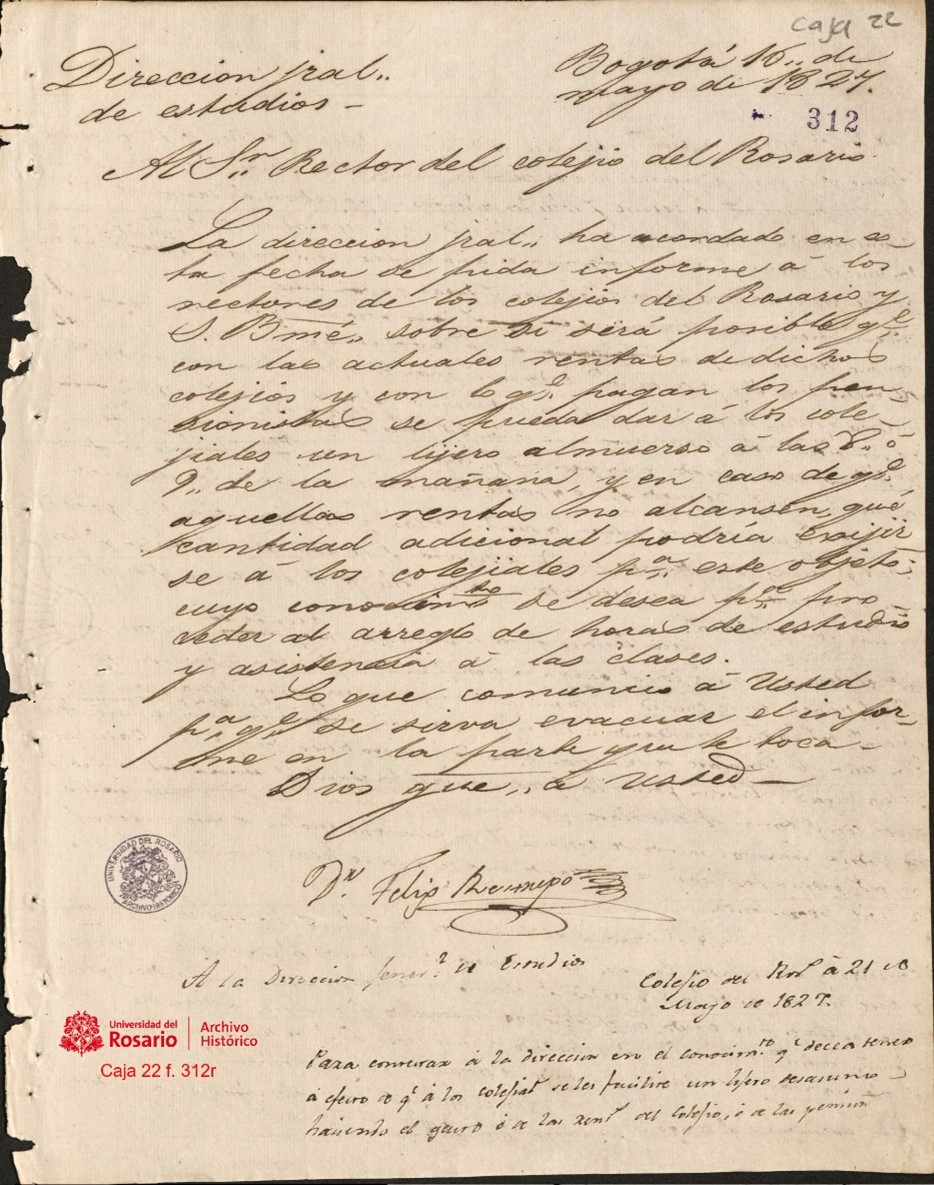 Caja 22
Direccion jral..
de estudios -
Bogotá 16,, de
mayo de 1827.
312
Al Sr.. Rector del colejio del Rosario.
La direccion jral,, ha acordado en es-
ta fecha se pida informe á los
rectores de los colejios del Rosario y
S. Bmé,, sobre si será posible qe.
con las actuales rentas de dichos
colejios y con lo qe. pagan los pen-
sionistas se pueda dar á los cole-
jiales un lijero almuerso á las 8,, ó
9,, de la mañana, y en caso de qe.
aquellas rentas no alcansen, qué
cantidad adicional podría exijir
se á los colejiales pa.. este objeto;
cuyo conocimto se desea pa.. pro
ceder al arreglo de horas de estudio
y asistencia á las clases.
Lo que comunico á Usted
pa,, qe. se sirva evacuar el infor-
me en la parte que le toca -
Dios gue,, á Usted -
UNIVERSIDAD DEL ROSARIO
ARCHIVO HISTORICO
Dr. Felix Restrepo
A la Direccion Jenerl. de Estudios
Colejio del Rosº. á 21 de
Mayo de 1827.
Universidad del
Rosario
Archivo
Histórico
Caja 22 f. 312r
Para á la direccion en el conocimto. qe. decea tener
á efecto de qe. á los colejials. se les facilite un lijero desaiuno
haciendo el gasto ó de las rents. del Colejio, ó de las